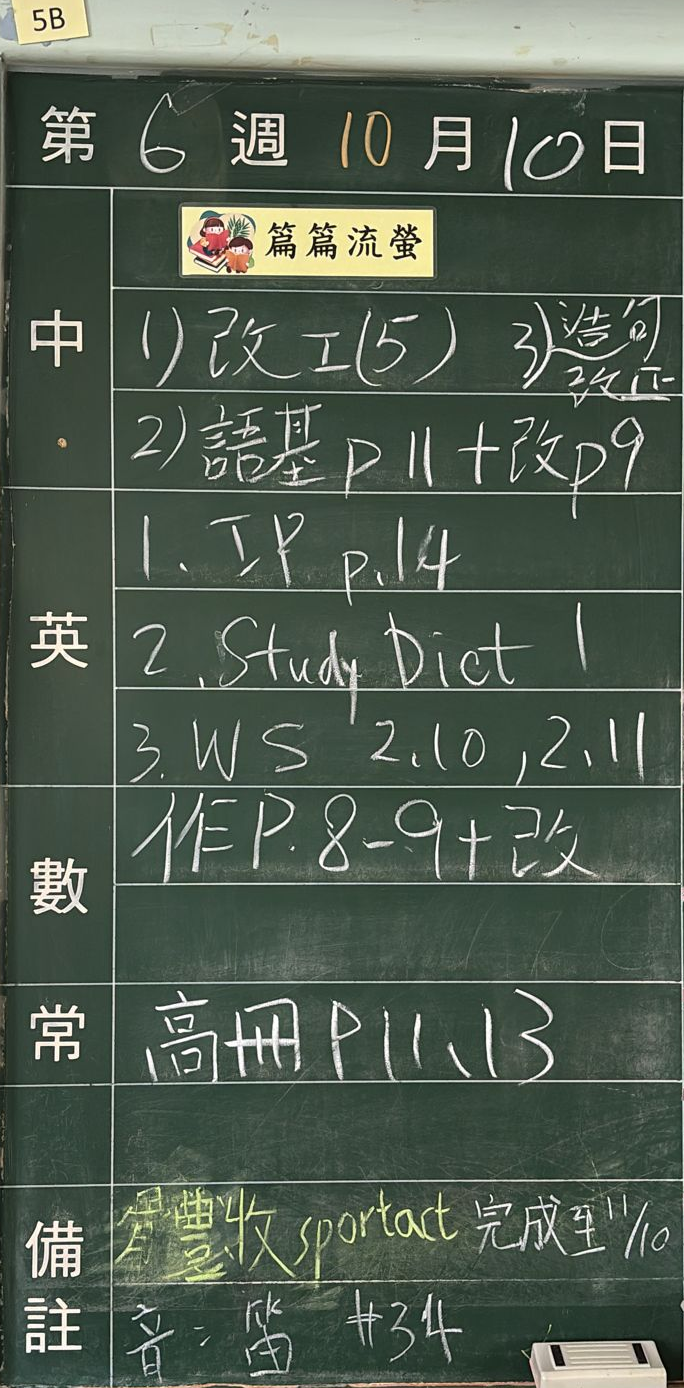 5B
第 6 週 10 月 10 日
篇篇流螢
中
1) 改工(5) 3)造句
改正
2) 語基 p 11 + 改p9
英
1、IP p.14
2、Study Dict 1
3. WS 2.10 , 2.11
數
作P. 8-9+改
常
高冊P11、13
備註
體收sportact 完成至11/10
音：笛 #34